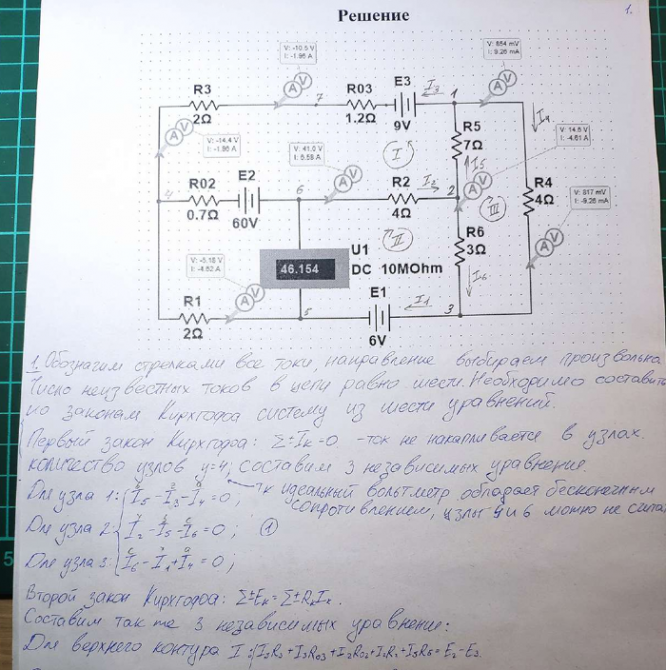 1.
Решение
V: -10.5 V
I: -1.96 A
V: 854 mV
I: 9.26 mA
R3
2Ω
7
R03
1.2Ω
E3
9V
I₃
1
A V
I₄
V: -14.4 V
I: -1.96 A
I
R5
7Ω
I₅
V: 14.6 V
I: -4.61 A
4
R02
0.7Ω
E2
60V
V: 41.0 V
I: 6.58 A
6
R2
4Ω
I₂
2
III
R4
4Ω
V: 817 mV
I: -9.26 mA
II
R6
3Ω
I₆
U1
46.154
DC 10MOhm
V: -5.15 V
I: -4.62 A
R1
2Ω
5
E1
6V
I₁
3
1. Обозначим стрелками все токи, направление выбираем произвольна
Число неизвестных токов в цепи равно шести. Необходимо составить
по законам Кирхгофа систему из шести уравнений.
Первый закон Кирхгофа: Σ±Iк=0 -ток не накапливается в узлах.
количество узлов y=4, составим 3 независимых уравнение.
Для узла 1: I₅-I₃-I₄=0; тк идеальный вольтметр обладает бесконечным
сопротивлением, узлы 5 и 6 можно не счита
Для узла 2: I₂-I₅-I₆=0; ①
Для узла 3: I₆-I₁+I₄=0;
Второй закон Кирхгофа: Σ±Eк=Σ±RкIк.
Составим так же 3 независимых уравнение:
Для верхнего контура I: I₃R₃+I₃R₀₃+I₂R₀₂+I₂R₂+I₅R₅=E₂-E₃